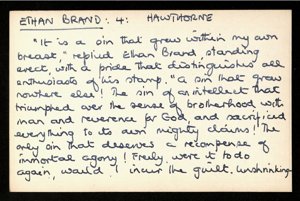 ETHAN BRAND : 4 : HAWTHORNE
"It is a sin that grew within my own
breast" replied Ethan Brand, standing
erect, with a pride that distinguishes all
enthusiasts of his stamp. "A sin that grew
nowhere else! The sin of an intellect that
triumphed over the sense of brotherhood with
man and reverence for God, and sacrificed
everything to its own mighty claims! The
only sin that deserves a recompense of
immortal agony! Freely, were it to do
again, would I incur the guilt. Unshrinking-